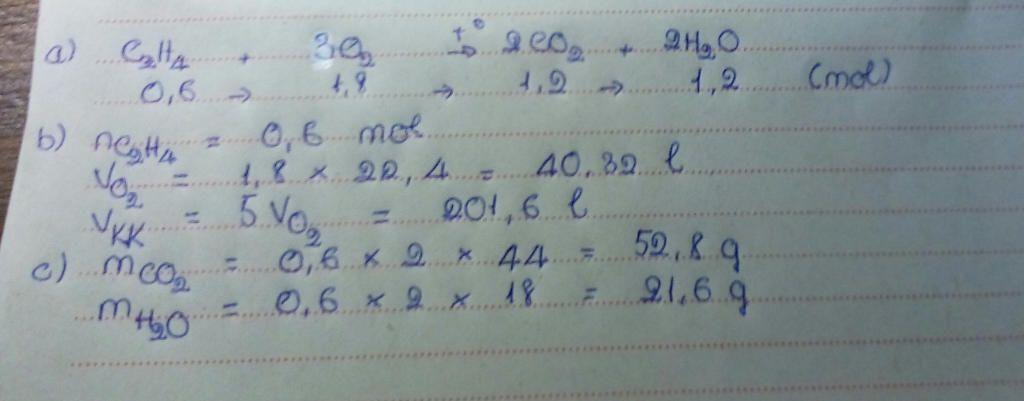 a) C₂H₄ + 3O₂ →(t°) 2CO₂ + 2H₂O
0,6 → 1,8 → 1,2 → 1,2 (mol)
b) nC₂H₄ = 0,6 mol
V_O₂ = 1,8 × 22,4 = 40,32 l
V_KK = 5 V_O₂ = 201,6 l
c) mCO₂ = 0,6 × 2 × 44 = 52,8 g
m_H₂O = 0,6 × 2 × 18 = 21,6 g